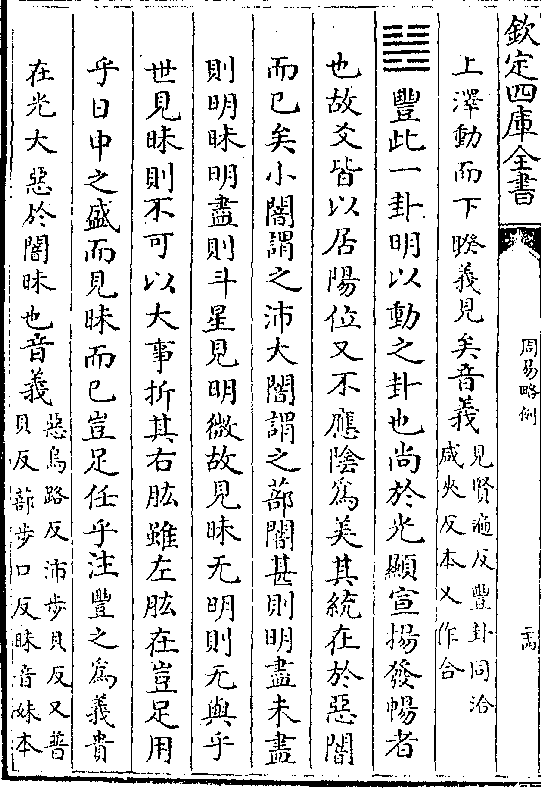 欽定四庫全書
周易略例
上澤動而下睽義見矣音義見賢遍反豐卦同洽
咸夾反本又作合
䷶豐此一卦明以動之卦也尚於光顯宣揚發暢者
也故爻皆以居陽位又不應陰為美其統在於惡闇
而已矣小闇謂之沛大闇謂之蔀闇甚則明盡未盡
則明昧明盡則斗星見明微故見昧无明則无與乎
世見昧則不可以大事折其右肱雖左肱在豈足用
乎日中之盛而見昧而已豈足任乎注豐之為義貴
在光大惡於闇昧也音義惡烏路反沛步貝反又普
貝反蔀步口反昧音妹本